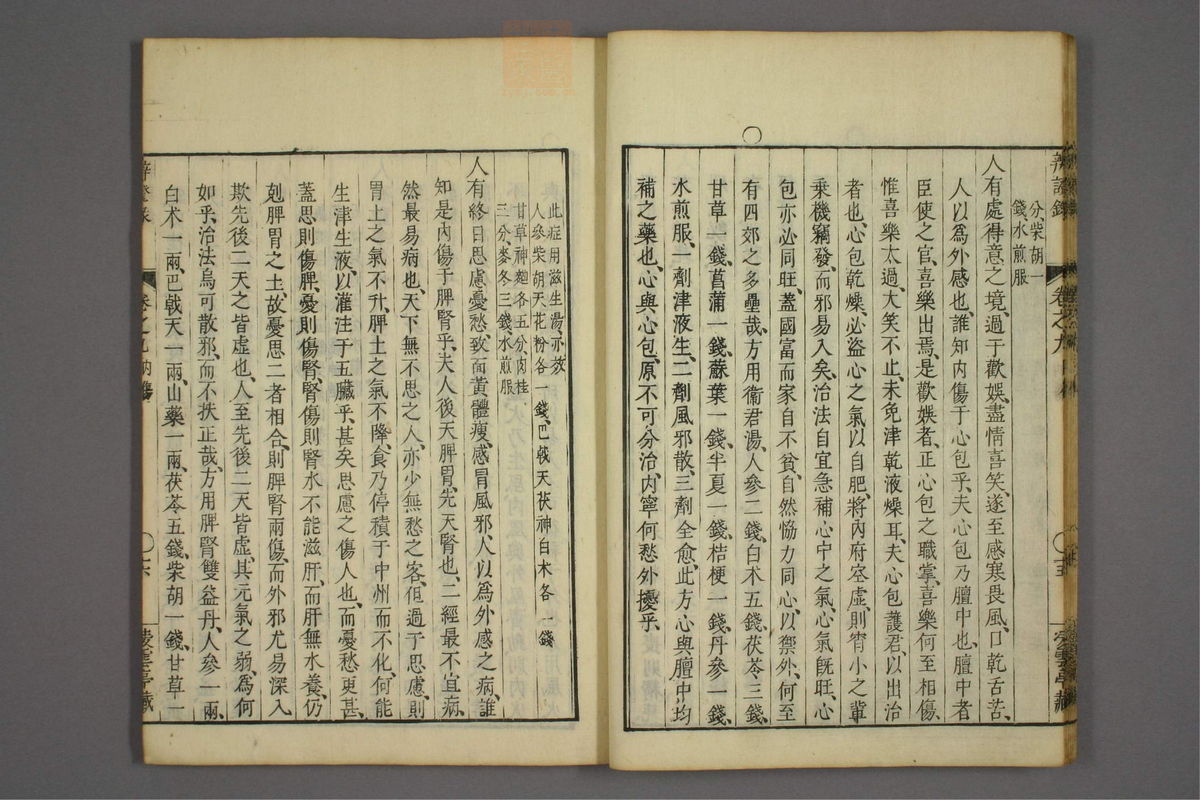 辨證錄
卷之九
分、柴胡一
錢、水煎服、
人有處得意之境、過于歡娛、盡情喜笑、遂至感寒畏風、口乾舌苦、
人以爲外感也、誰知內傷于心包乎、夫心包乃膻中也、膻中者
臣使之官、喜樂出焉、是歡娛者、正心包之職掌、喜樂何至相傷、
惟喜樂太過、大笑不止、未免津乾液燥耳、夫心包護君、以出治
者也、心包乾燥、必盜心之氣以自肥、將內府空虛、則宵小之輩
乘機竊發、而邪易入矣、治法自宜急補心中之氣、心氣既旺、心
包亦必同旺、蓋國富而家自不貧、自然恊力同心、以禦外、何至
有四郊之多壘哉、方用衞君湯、人參二錢、白术五錢、茯苓三錢、
甘草一錢、菖蒲一錢、蘇葉一錢、半夏一錢、桔梗一錢、丹參一錢、
水煎服、一劑津液生、二劑風邪散、三劑全愈、此方心與膻中均
補之藥也、心與心包、原不可分治、內寧何愁外擾乎、
此症用滋生湯、亦效、
人參柴胡天花粉各一錢、巴戟天茯神白术各一錢
甘草神麴各五分、肉桂
三分、麥冬三錢、水煎服
人有終日思慮憂愁、致面黃體瘦、感冒風邪、人以爲外感之病、誰
知是內傷于脾腎乎、夫人後天脾胃、先天腎也、二經最不宜病、
然最易病也、天下無不思之人、亦少無愁之客、但過于思慮、則
胃土之氣不升、脾土之氣不降、食乃停積于中州而不化、何能
生津生液、以灌注于五臟乎、甚矣思慮之傷人也、而憂愁更甚、
蓋思則傷脾、憂則傷腎、腎傷則腎水不能滋肝、而肝無水養、仍
剋脾胃之土、故憂思二者相合、則脾腎兩傷、而外邪尤易深入
欺先後二天之皆虛也、人至先後二天皆虛、其元氣之弱、爲何
如乎、治法烏可散邪、而不扶正哉、方用脾腎雙益丹、人參一兩、
白术一兩、巴戟天一兩、山藥一兩、茯苓五錢、柴胡一錢、甘草一
卷之九